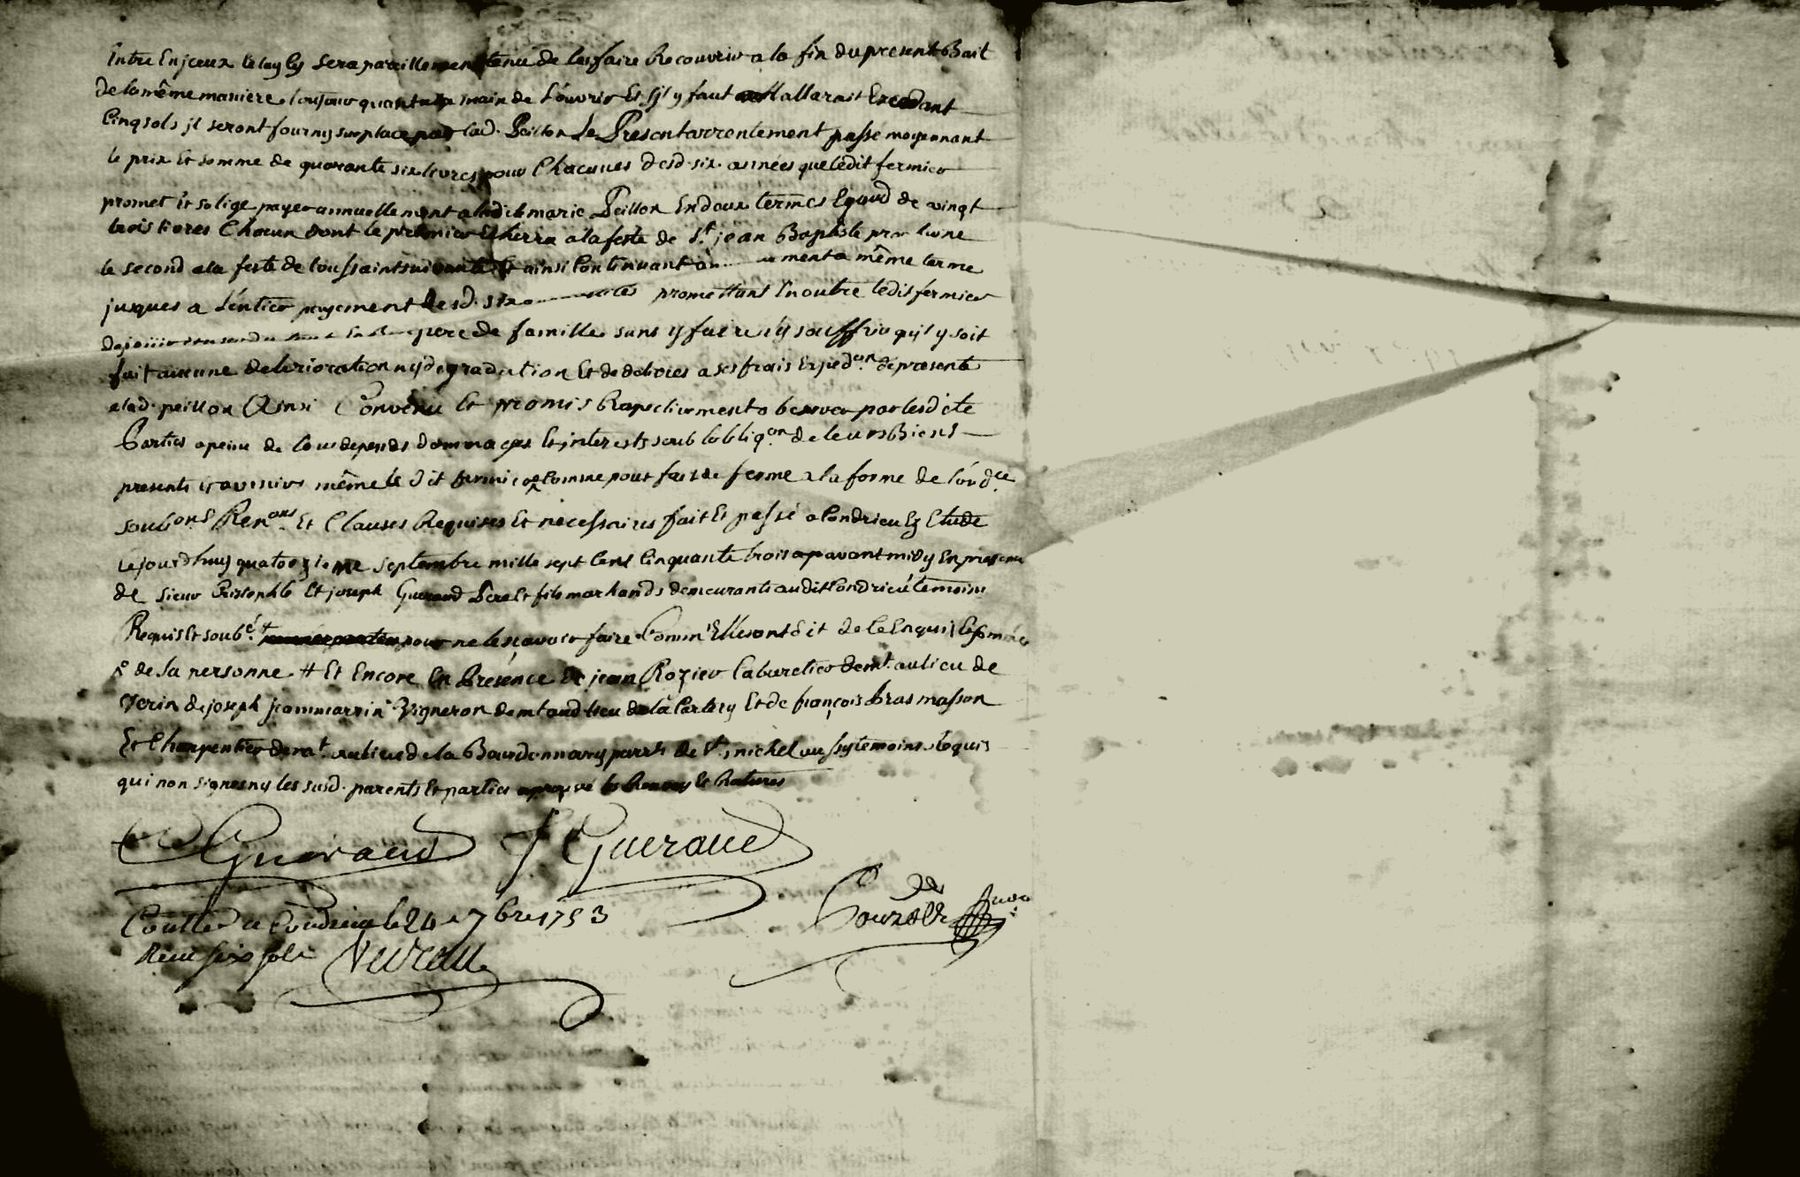 Entre En jceux leluy Cy sera pareillement tenu de les faire Recouvrir a la fin du present Bait
de la même maniere toujours quant a la main de L'ouvrie Et s'jl y faut materaist Excedant
Cinq sols jl seront fournys sur place par lad. Peillon Le Present arrentement passé moyennant
le prix Et somme de quarante six livres pour Chacunes desd. six années que ledit fermier
promet Et soblige payer annuellement a ladite marie Peillon En deux termes Egaud de vingt
trois livres Chacun dont le premier Echerra a la feste de St jean Baptiste proche
le second a la feste de toussaint suivante Et ainsi Continuant a même terme
jusques a L'entier payement desd. six promettant En outre ledit fermier
de jouir pere de famille sans y faire n'y souffrir qu'il y soit
fait aucune deterioration ny degradation Et de delivrer a ses frais Exped.on de presente
a lad. peillon Ainsi Convenu Et promis Respectivement observer par lesdite
Parties a peine de tous depends dommages Et interests soub lobliq.on de leurs Biens
presents et avenirs même le dit fermier Comme pour fait de ferme a la forme de l'ord.ce
soub.ons Ren.ons Et Clauses Requises Et necessaires fait Et passé a Condrieu Ez Etude
Cejourdhuy quatorzieme septembre mille sept Cent Cinquante trois avant midy En presence
de sieur Cristophle Et joseph Gueraud Pere Et fils marchands demeurants audit Condrieu temoins
Requis Et soub.é pour ne le sçavoir faire Comm'Elles ont dit de Ce Enquis
de sa personne # Et Encore En Presence de jean Rozier Cabaretier dem.t au lieu de
Verin de joseph Vigneron dem.t aud lieu de la Et de françois bras masson
Et Charpentier dem.t au lieu de la Bourdonnary parr.se de St michel aussy temoins Requis
qui n'on signes ny les susd. parents Et parties aprouvé
Gueraud J Gueraud
Contlé a Condrieu le 24 7bre 1753
Reçu six sols